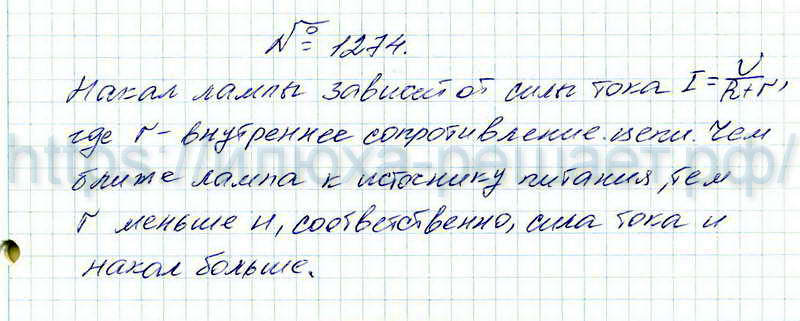 № 1274.
Накал лампы зависит от силы тока I = U/R+r,
где r - внутреннее сопротивление цепи. Чем
ближе лампа к источнику питания, тем
r меньше и, соответственно, сила тока и
накал больше.